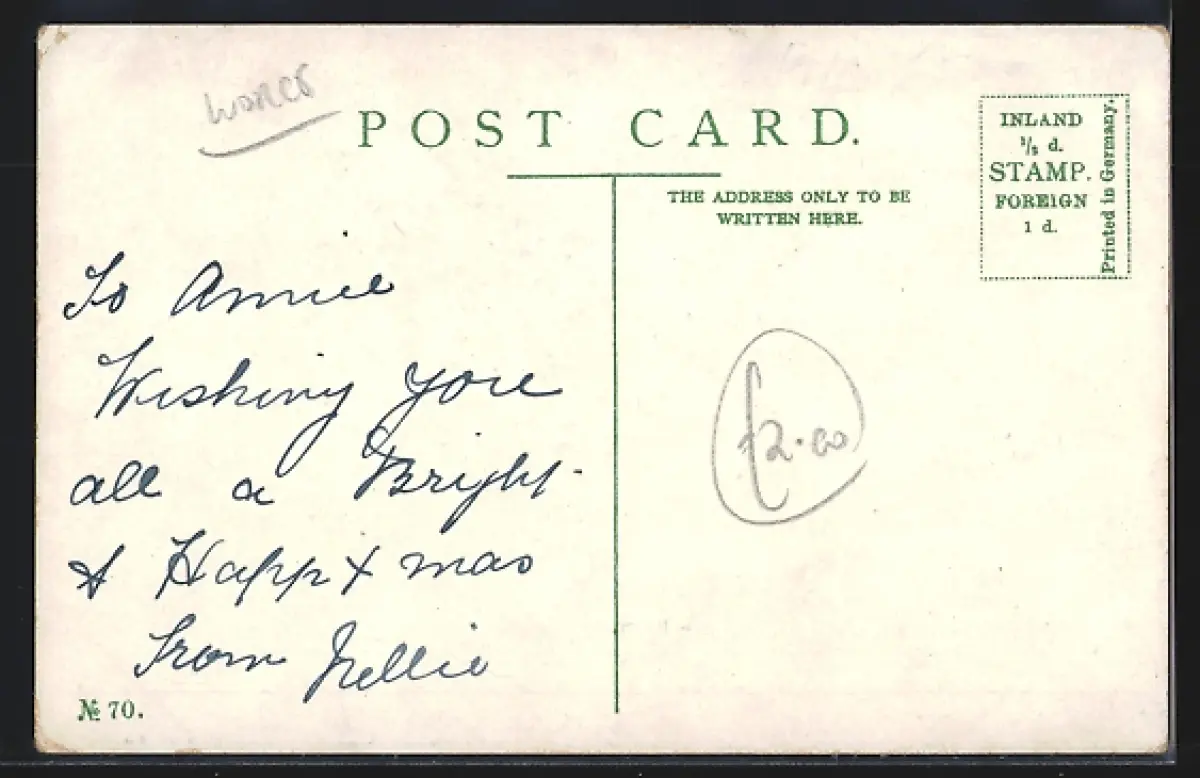 WORCS
POST CARD.
THE ADDRESS ONLY TO BE
WRITTEN HERE.
INLAND
½ d.
STAMP.
FOREIGN
1 d.
Printed in Germany.
To Annie
Wishing you
all a Bright
& Happ Xmas
From Nellie
£2.00
№ 70.